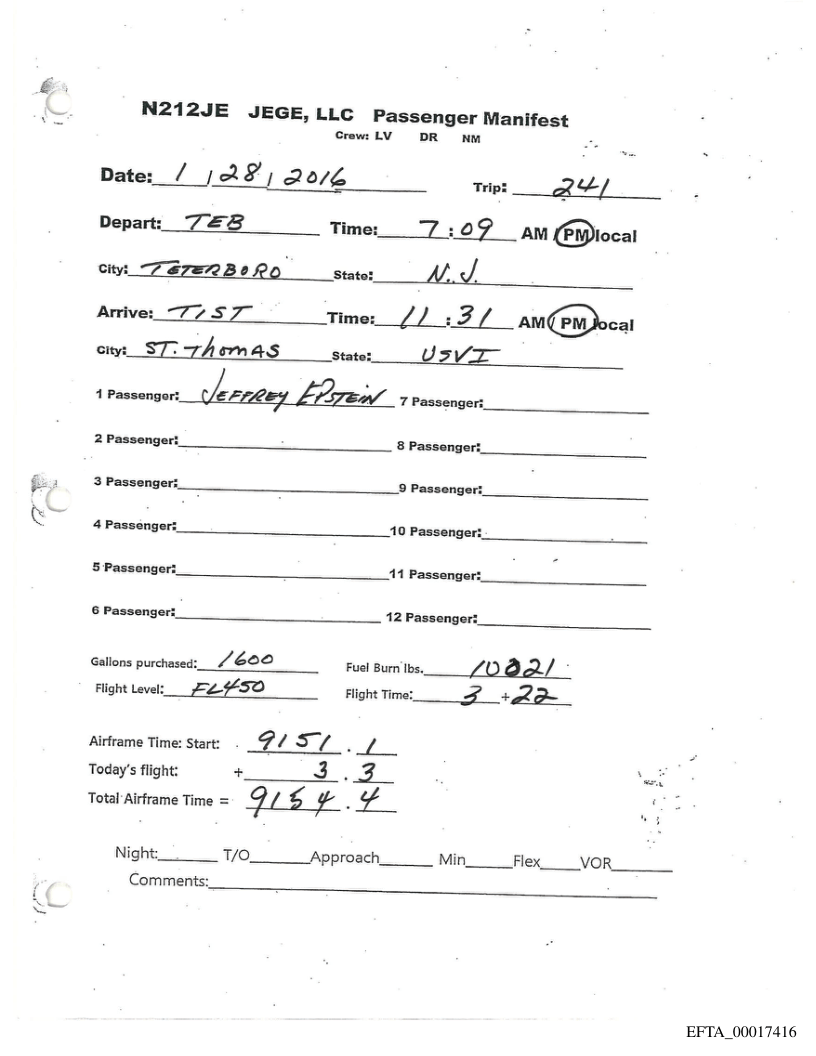 N212JE JEGE, LLC Passenger Manifest
Crew: LV DR NM
Date: 1 / 28 / 2016 Trip: 241
Depart: TEB Time: 7 : 09 AM / PM local
City: TETERBORO State: N.J.
Arrive: TIST Time: 11 : 31 AM / PM local
City: ST. THOMAS State: USVI
1 Passenger: JEFFREY EPSTEIN 7 Passenger:
2 Passenger: 8 Passenger:
3 Passenger: 9 Passenger:
4 Passenger: 10 Passenger:
5 Passenger: 11 Passenger:
6 Passenger: 12 Passenger:
Gallons purchased: 1600 Fuel Burn lbs. 10021
Flight Level: FL450 Flight Time: 3 + 22
Airframe Time: Start: 9151 . 1
Today's flight: + 3 . 3
Total Airframe Time = 9154 . 4
Night: T/O Approach Min Flex VOR
Comments:
EFTA_00017416